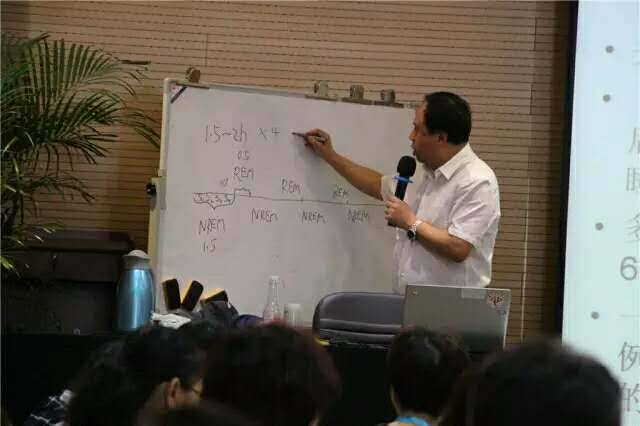 1.5~2h × 4
0.5
REM
REM
REM
NREM
NREM
NREM
NREM
1.5
6
例
的